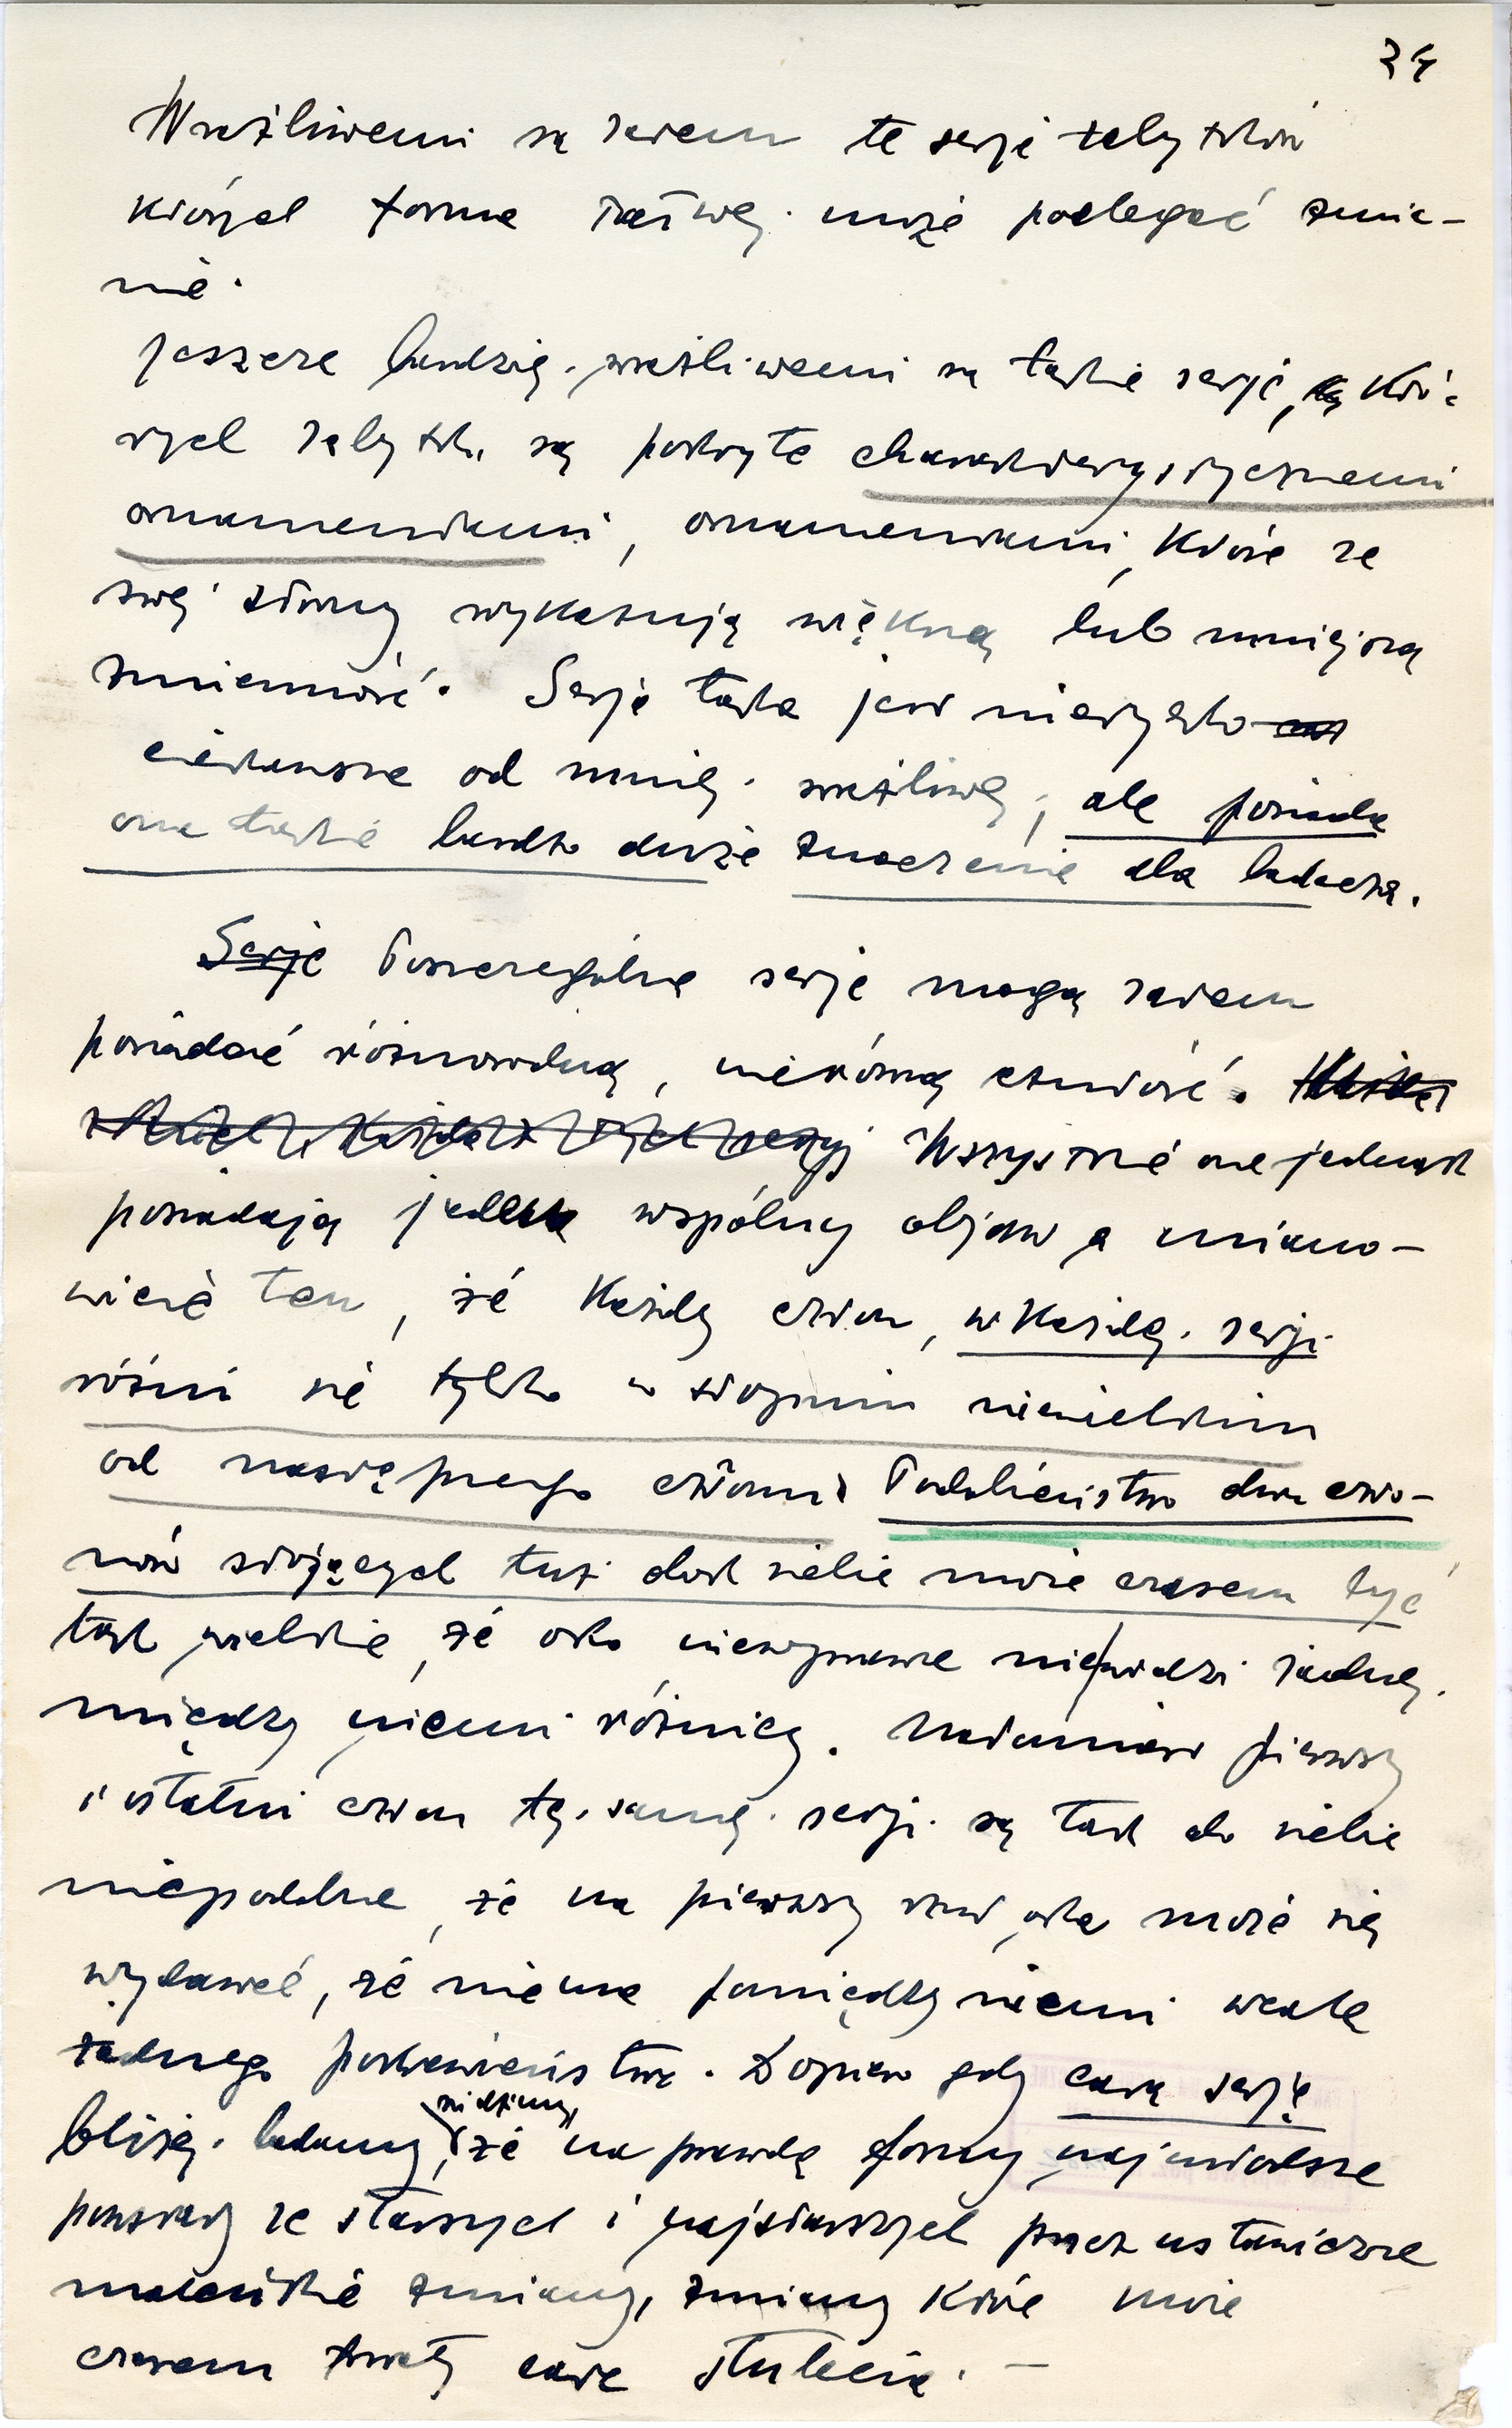 24
Wrażliwemi są zatem te serje zabytków
których forma łatwej może podlegać zmia-
nie.
Jeszcze bardziej wrażliwemi są takie serje, któ-
rych zabytki są pokryte charakterystycznemi
ornamentami, ornamentami, które ze
swej strony wykazują większą lub mniejszą
zmienność. Serja taka jest nietylko
ciekawsza od mniej wrażliwej, ale posiada
ona także bardzo duże znaczenie dla badacza.
Serje Poszczególne serje mogą zatem
posiadać różnorodną, nierówną czułość.
Każda z tych seryj Wszystkie one jednak
posiadają jeden wspólny objaw a miano-
wicie ten, że każdy człon, w każdej serji
różni się tylko w stopniu niewielkim
od następnego członu. Podobieństwo dwu czło-
nów stojących tuż obok siebie może czasem być
tak wielkie, że oko niewprawne nie widzi żadnej
między niemi różnicy. Natomiast pierwszy
i ostatni człon tej samej serji są tak do siebie
niepodobne, że na pierwszy rzut oka może się
wydawać, że niema pomiędzy niemi wcale
żadnego pokrewieństwa. Dopiero gdy całą serję
bliżej badamy, widzimy, że na prawdę formy najmłodsze
powstały ze starszych i najstarszych przez ustawiczne
maleńkie zmiany, zmiany które może
czasem trwały całe stulecia. —